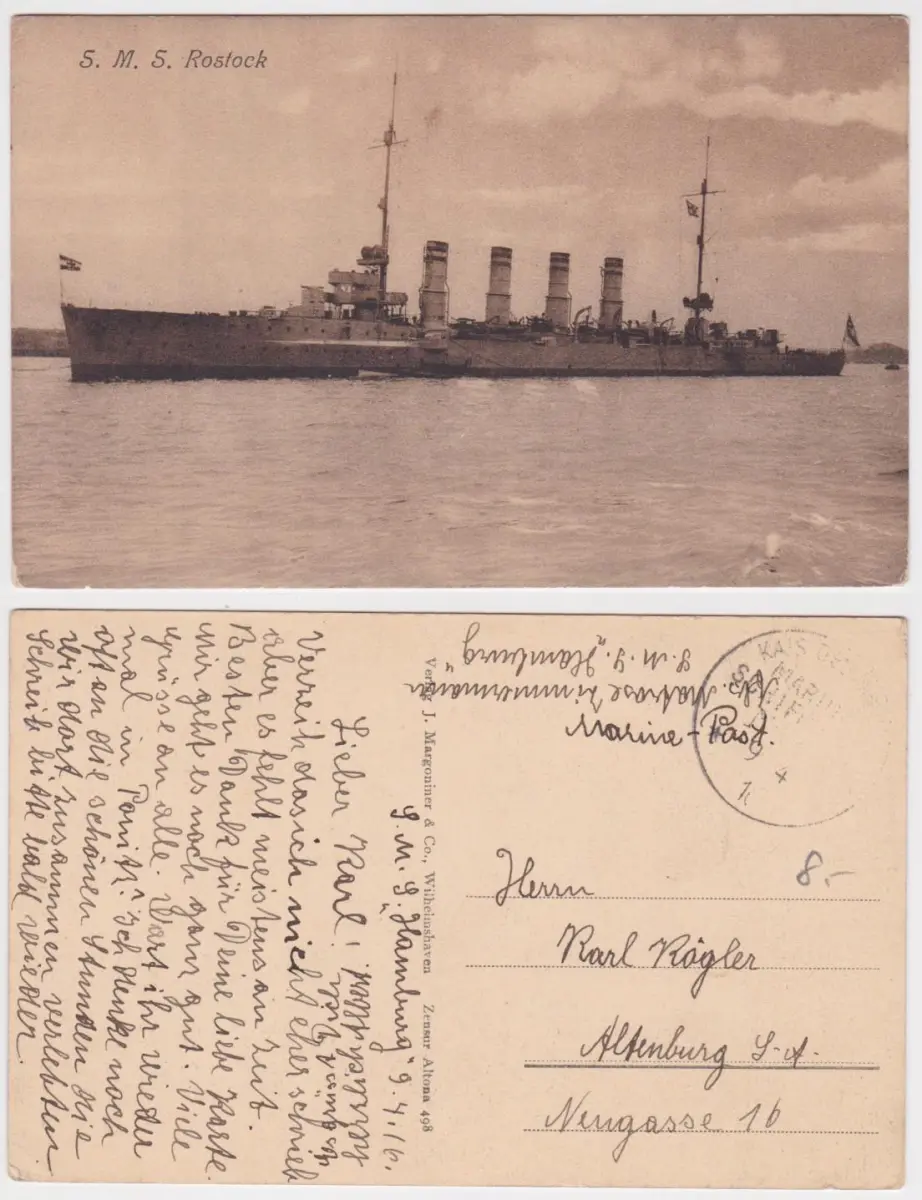 S. M. S. Rostock
S. M. S. „Hamburg" 9.4.16.
Lieber Karl!
Verzeih das ich nicht eher schrieb
aber es fehlt meistens an Zeit.
Besten Dank für Deine liebe Karte.
Mir geht es noch ganz gut. Viele
Grüsse an alle. Wart ihr wieder
mal in Ponitz? Ich denke noch
oft an die schönen Stunden die
wir dort zusammen verlebten
Schreib bitte bald wieder.
Herzlichst
Verlag J. Margoniner & Co., Wilhelmshaven Zensur Altona 498
Matrose Zimmermann
S. M. S. „Hamburg"
Marine-Post.
KAIS. DE
MARINE
SCHIFF
Herrn
Karl Kögler
Altenburg S.-A.
Neugasse 16
8.-